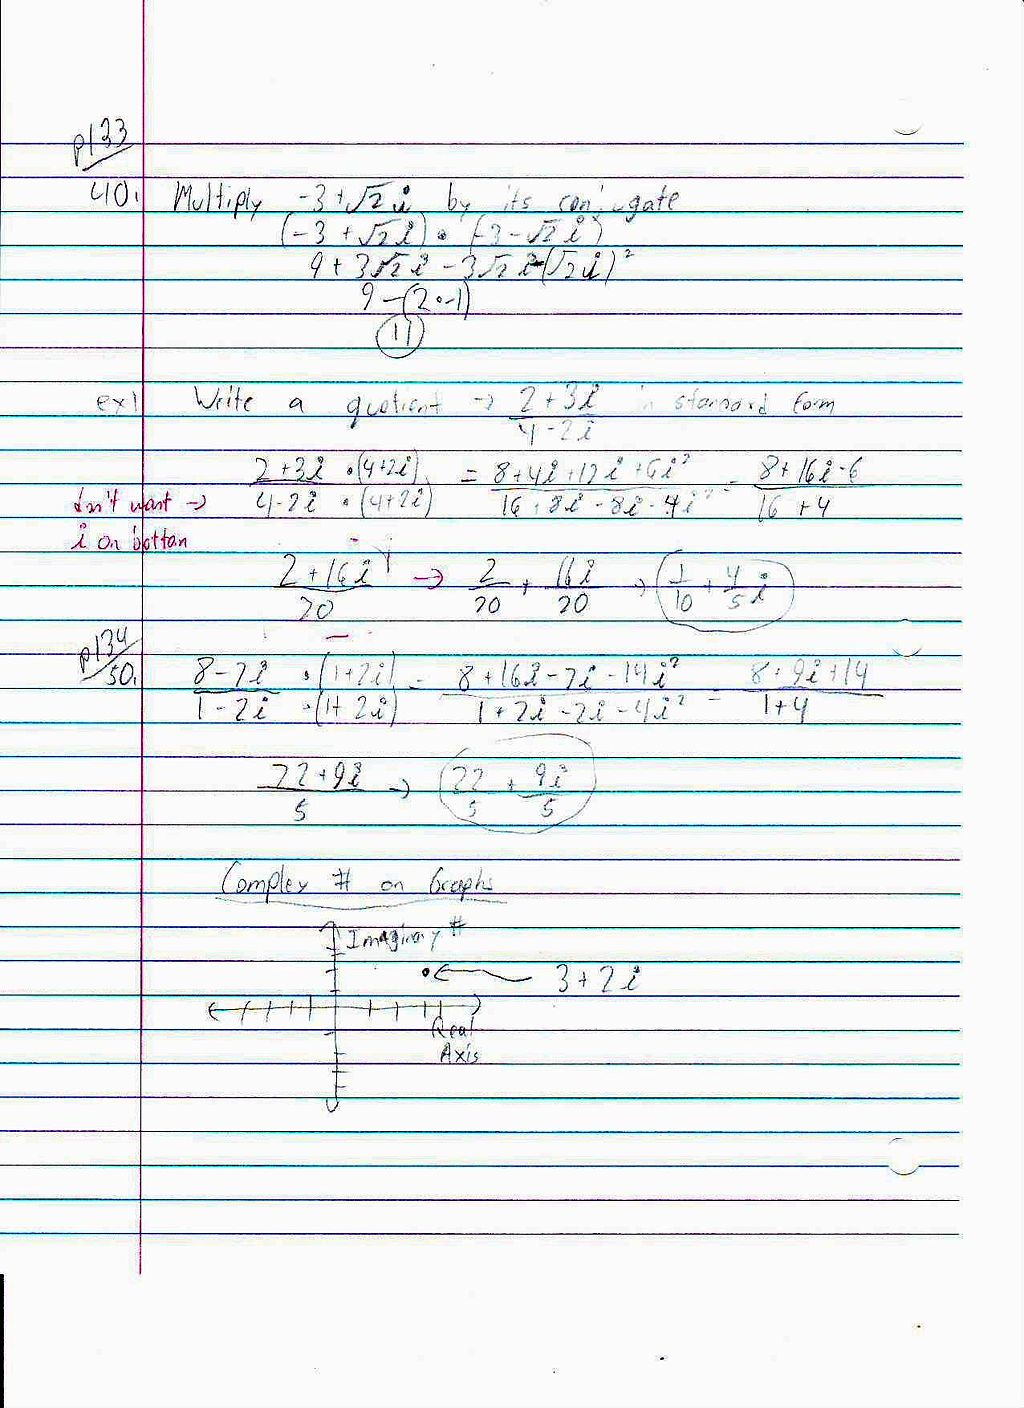 p133
40. Multiply -3+√2 i by its conjugate
(-3+√2 i) • (-3-√2 i)
9+3√2 i -3√2 i-(√2 i)²
9-(2•-1)
11
ex1 Write a quotient → 2+3i / 4-2i in standard form
2+3i •(4+2i) / 4-2i •(4+2i) = 8+4i+12i+6i² / 16+8i-8i-4i² = 8+16i-6 / 16+4
don't want →
i on bottom
2+16i / 20 → 2/20 + 16i/20 → 1/10 + 4/5 i
p134
50. 8-7i •(1+2i) / 1-2i •(1+2i) = 8+16i-7i-14i² / 1+2i-2i-4i² = 8+9i+14 / 1+4
22+9i / 5 → 22/5 + 9i/5
Complex # on Graphs
Imaginary #
3+2i
Real
Axis